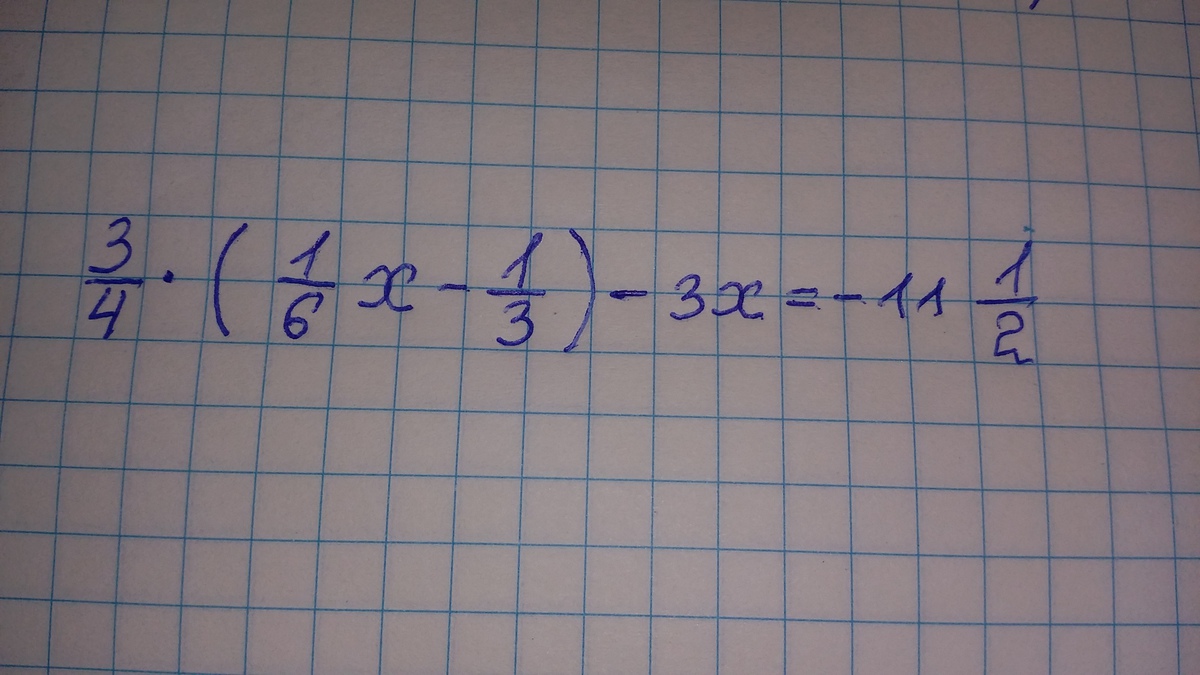 3/4 · (1/6 x - 1/3) - 3x = -11 1/2